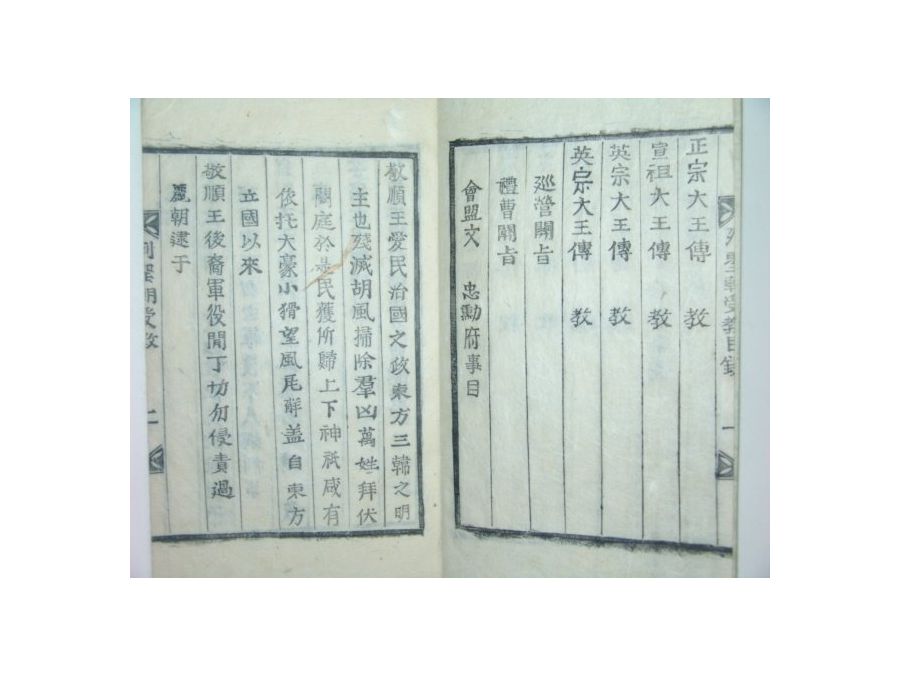 正宗大王傳 教
宣祖大王傳 教
英宗大王傳 教
英宗大王傳 教
巡營關旨
禮曹關旨
會盟文 忠勳府事目
一
敬順王愛民治國之政東方三韓之明
主也殘滅胡風掃除羣凶萬姓拜伏
闕庭於是民獲所歸上下神祇咸有
依托大豪小猾望風尾觧盖自東方
立國以來
敬順王後裔軍役閒丁切勿侵責過
麗朝逮于
列聖朝受教
二